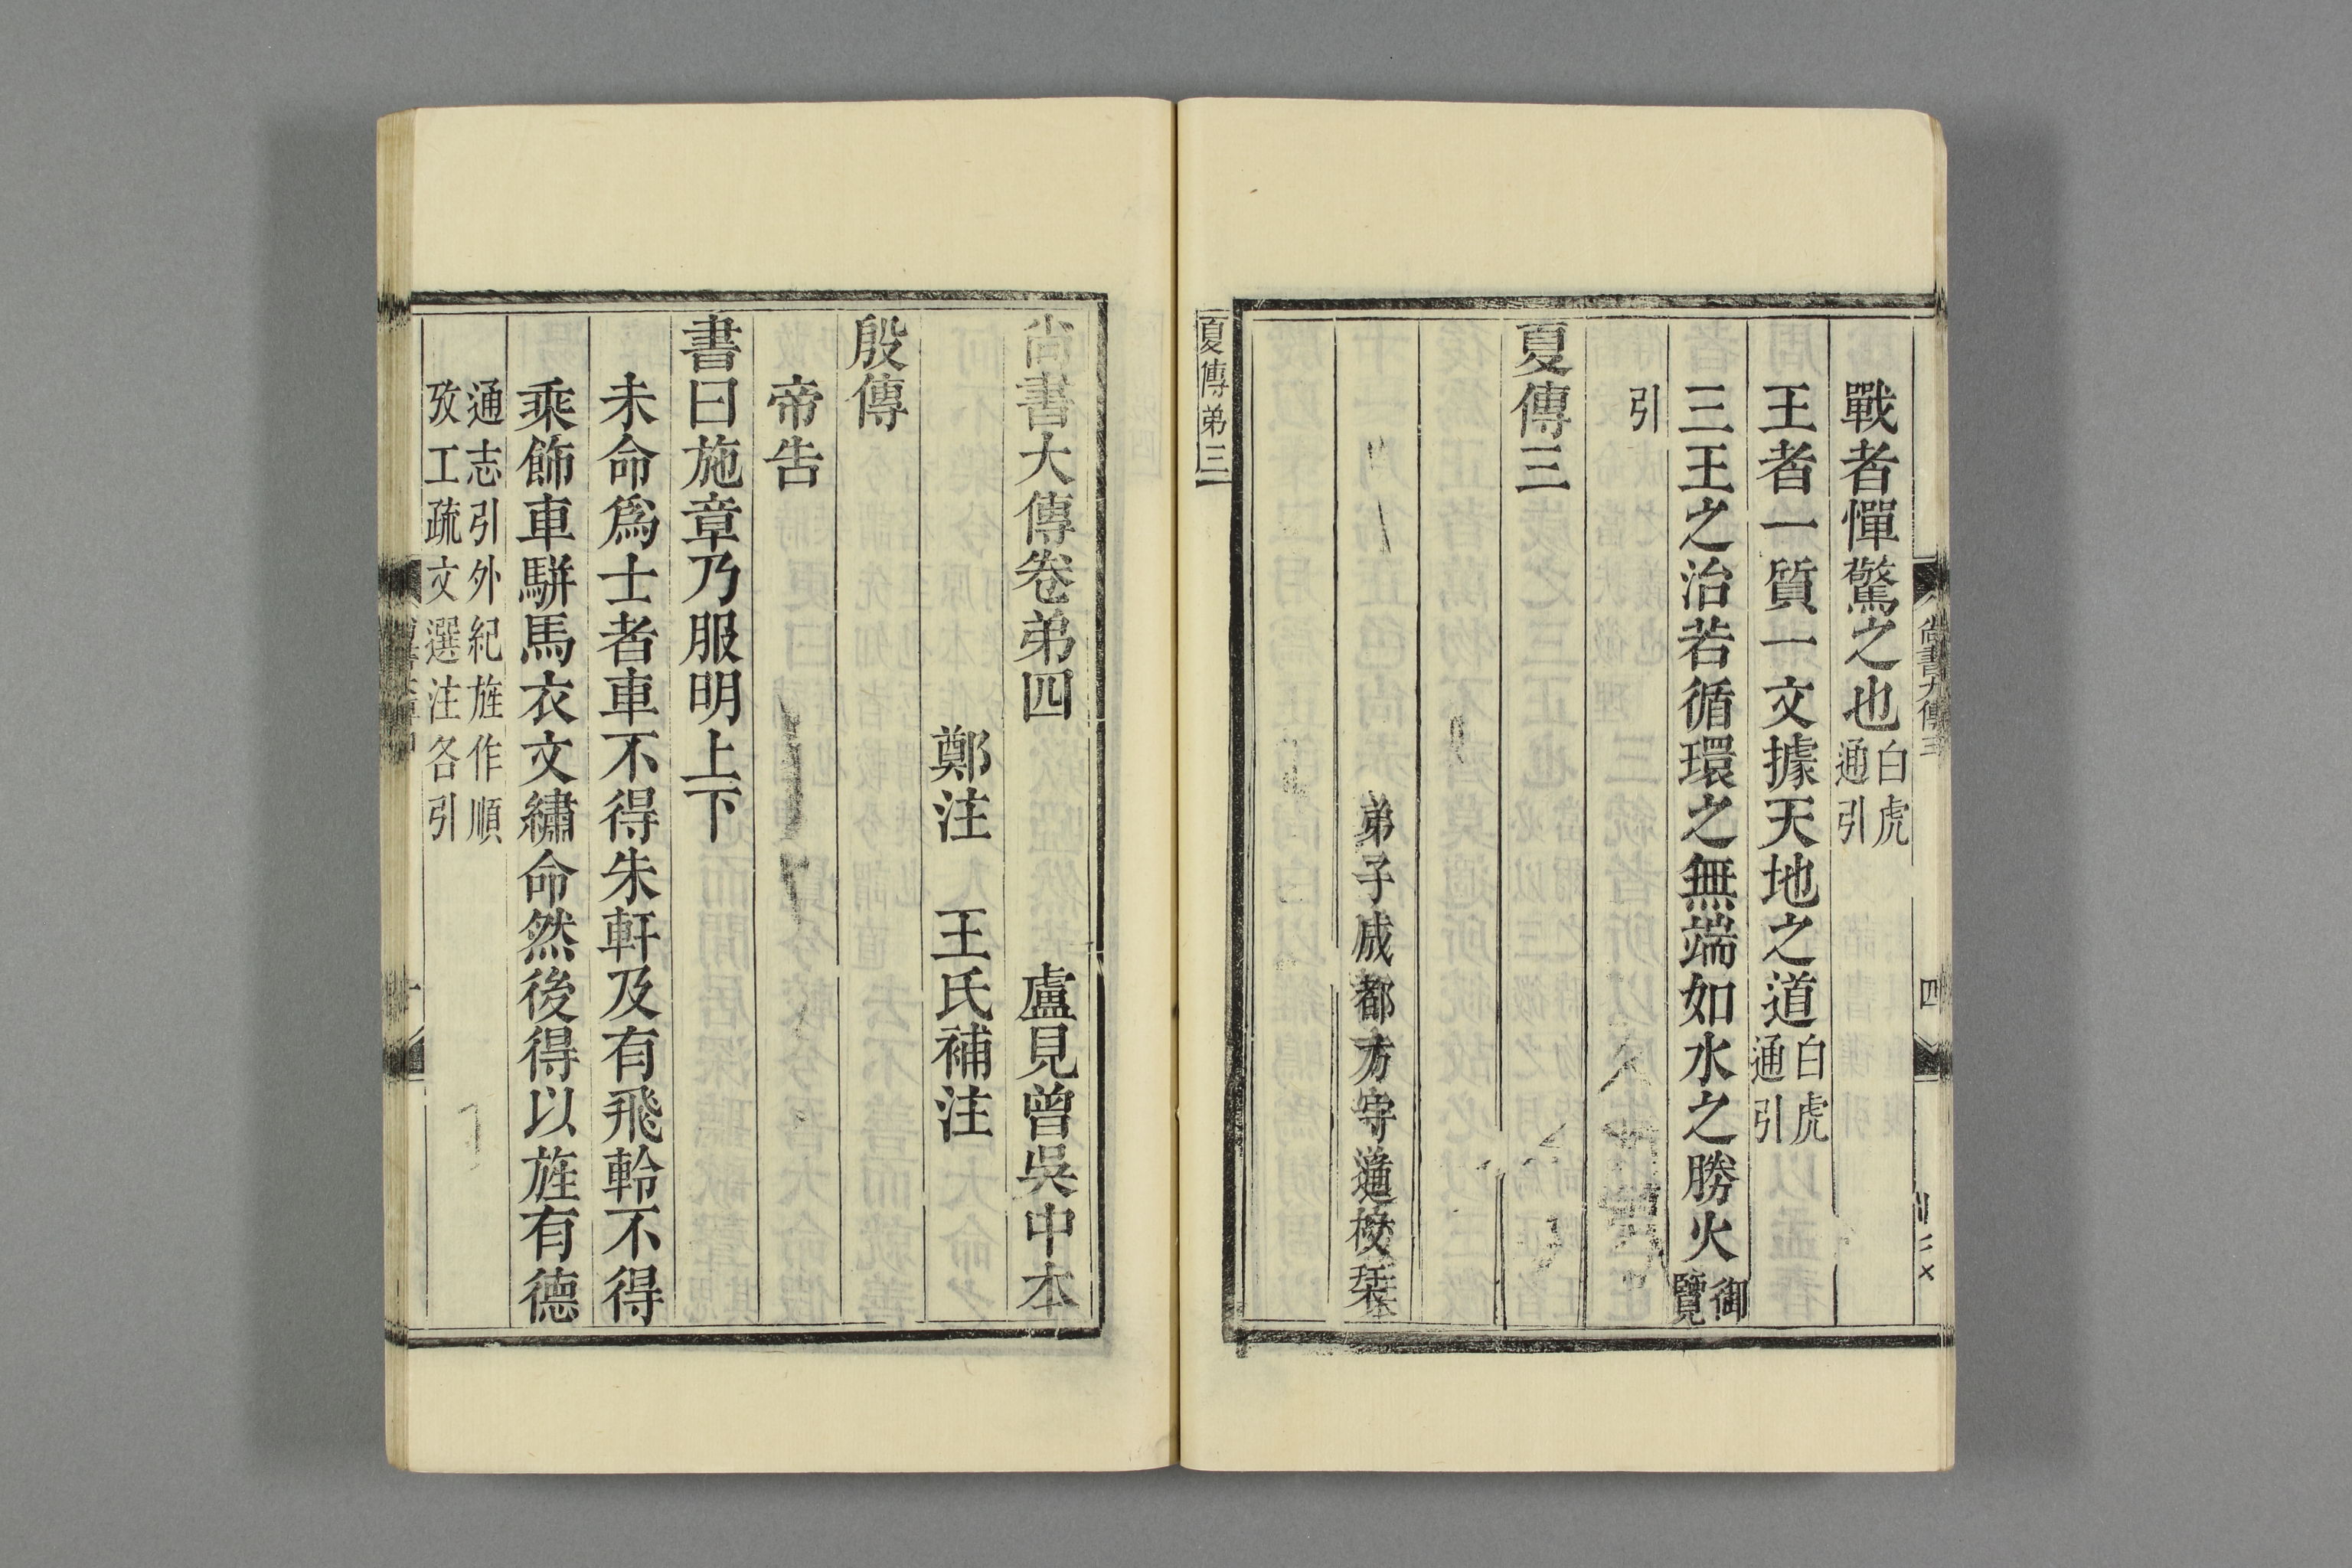 戰者憚驚之也白虎通引
王者一質一文據天地之道白虎通引
三王之治若循環之無端如水之勝火御覽
引
夏傳三
弟子戚都方守校栞
夏傳弟三
尚書大傳三
四
尚書大傳卷弟四 盧見曾吳中本
鄭注 王氏補注
殷傳
帝告
書曰施章乃服明上下
未命爲士者車不得朱軒及有飛軨不得
乘飾車騈馬衣文繡命然後得以旌有德
通志引外紀旌作順
攷工疏文選注各引